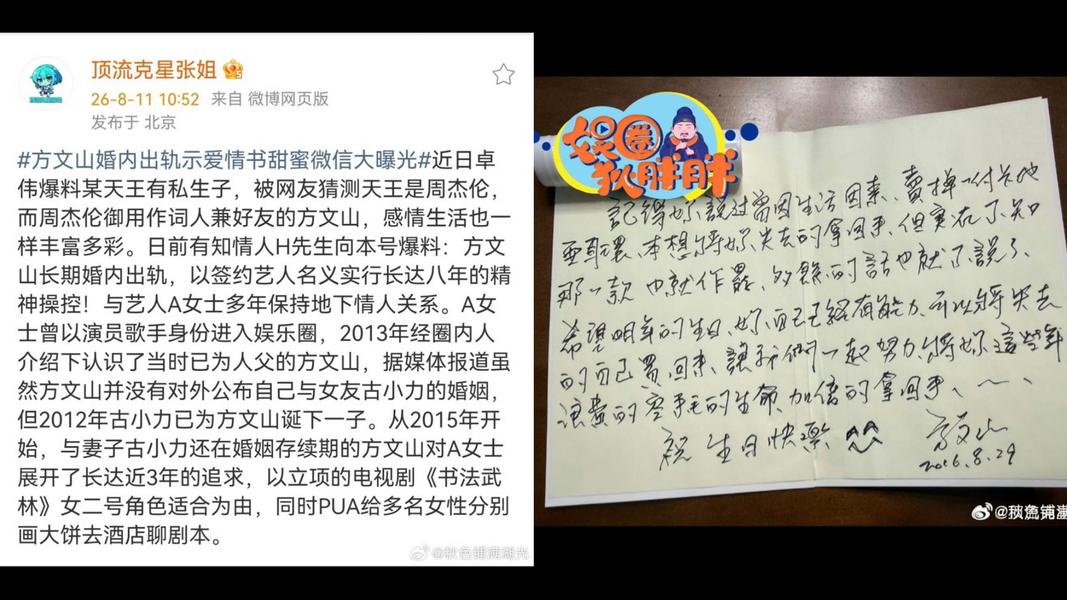 顶流克星张姐
26-8-11 10:52 来自 微博网页版
发布于 北京
#方文山婚内出轨示爱情书甜蜜微信大曝光#近日卓
伟爆料某天王有私生子，被网友猜测天王是周杰伦，
而周杰伦御用作词人兼好友的方文山，感情生活也一
样丰富多彩。日前有知情人H先生向本号爆料：方文
山长期婚内出轨，以签约艺人名义实行长达八年的精
神操控！与艺人A女士多年保持地下情人关系。A女
士曾以演员歌手身份进入娱乐圈，2013年经圈内人
介绍下认识了当时已为人父的方文山，据媒体报道虽
然方文山并没有对外公布自己与女友古小力的婚姻，
但2012年古小力已为方文山诞下一子。从2015年开
始，与妻子古小力还在婚姻存续期的方文山对A女士
展开了长达近3年的追求，以立项的电视剧《书法武
林》女二号角色适合为由，同时PUA给多名女性分别
画大饼去酒店聊剧本。
@秋色铺满湖光
娱圈
狄胖胖
記得妳說過當因生活因素、賣掉一付
耳環、本想將妳失去的拿回來、但實在不知
那一款 也就作罷、多餘的話也就不說了、
希望明年的生日、妳自己已經有能力可以將失去
的自己買回來、讓我們一起努力將妳這些年
浪費的 的生命加倍的拿回來、~、
祝 生日快樂 文山
2016.8.29